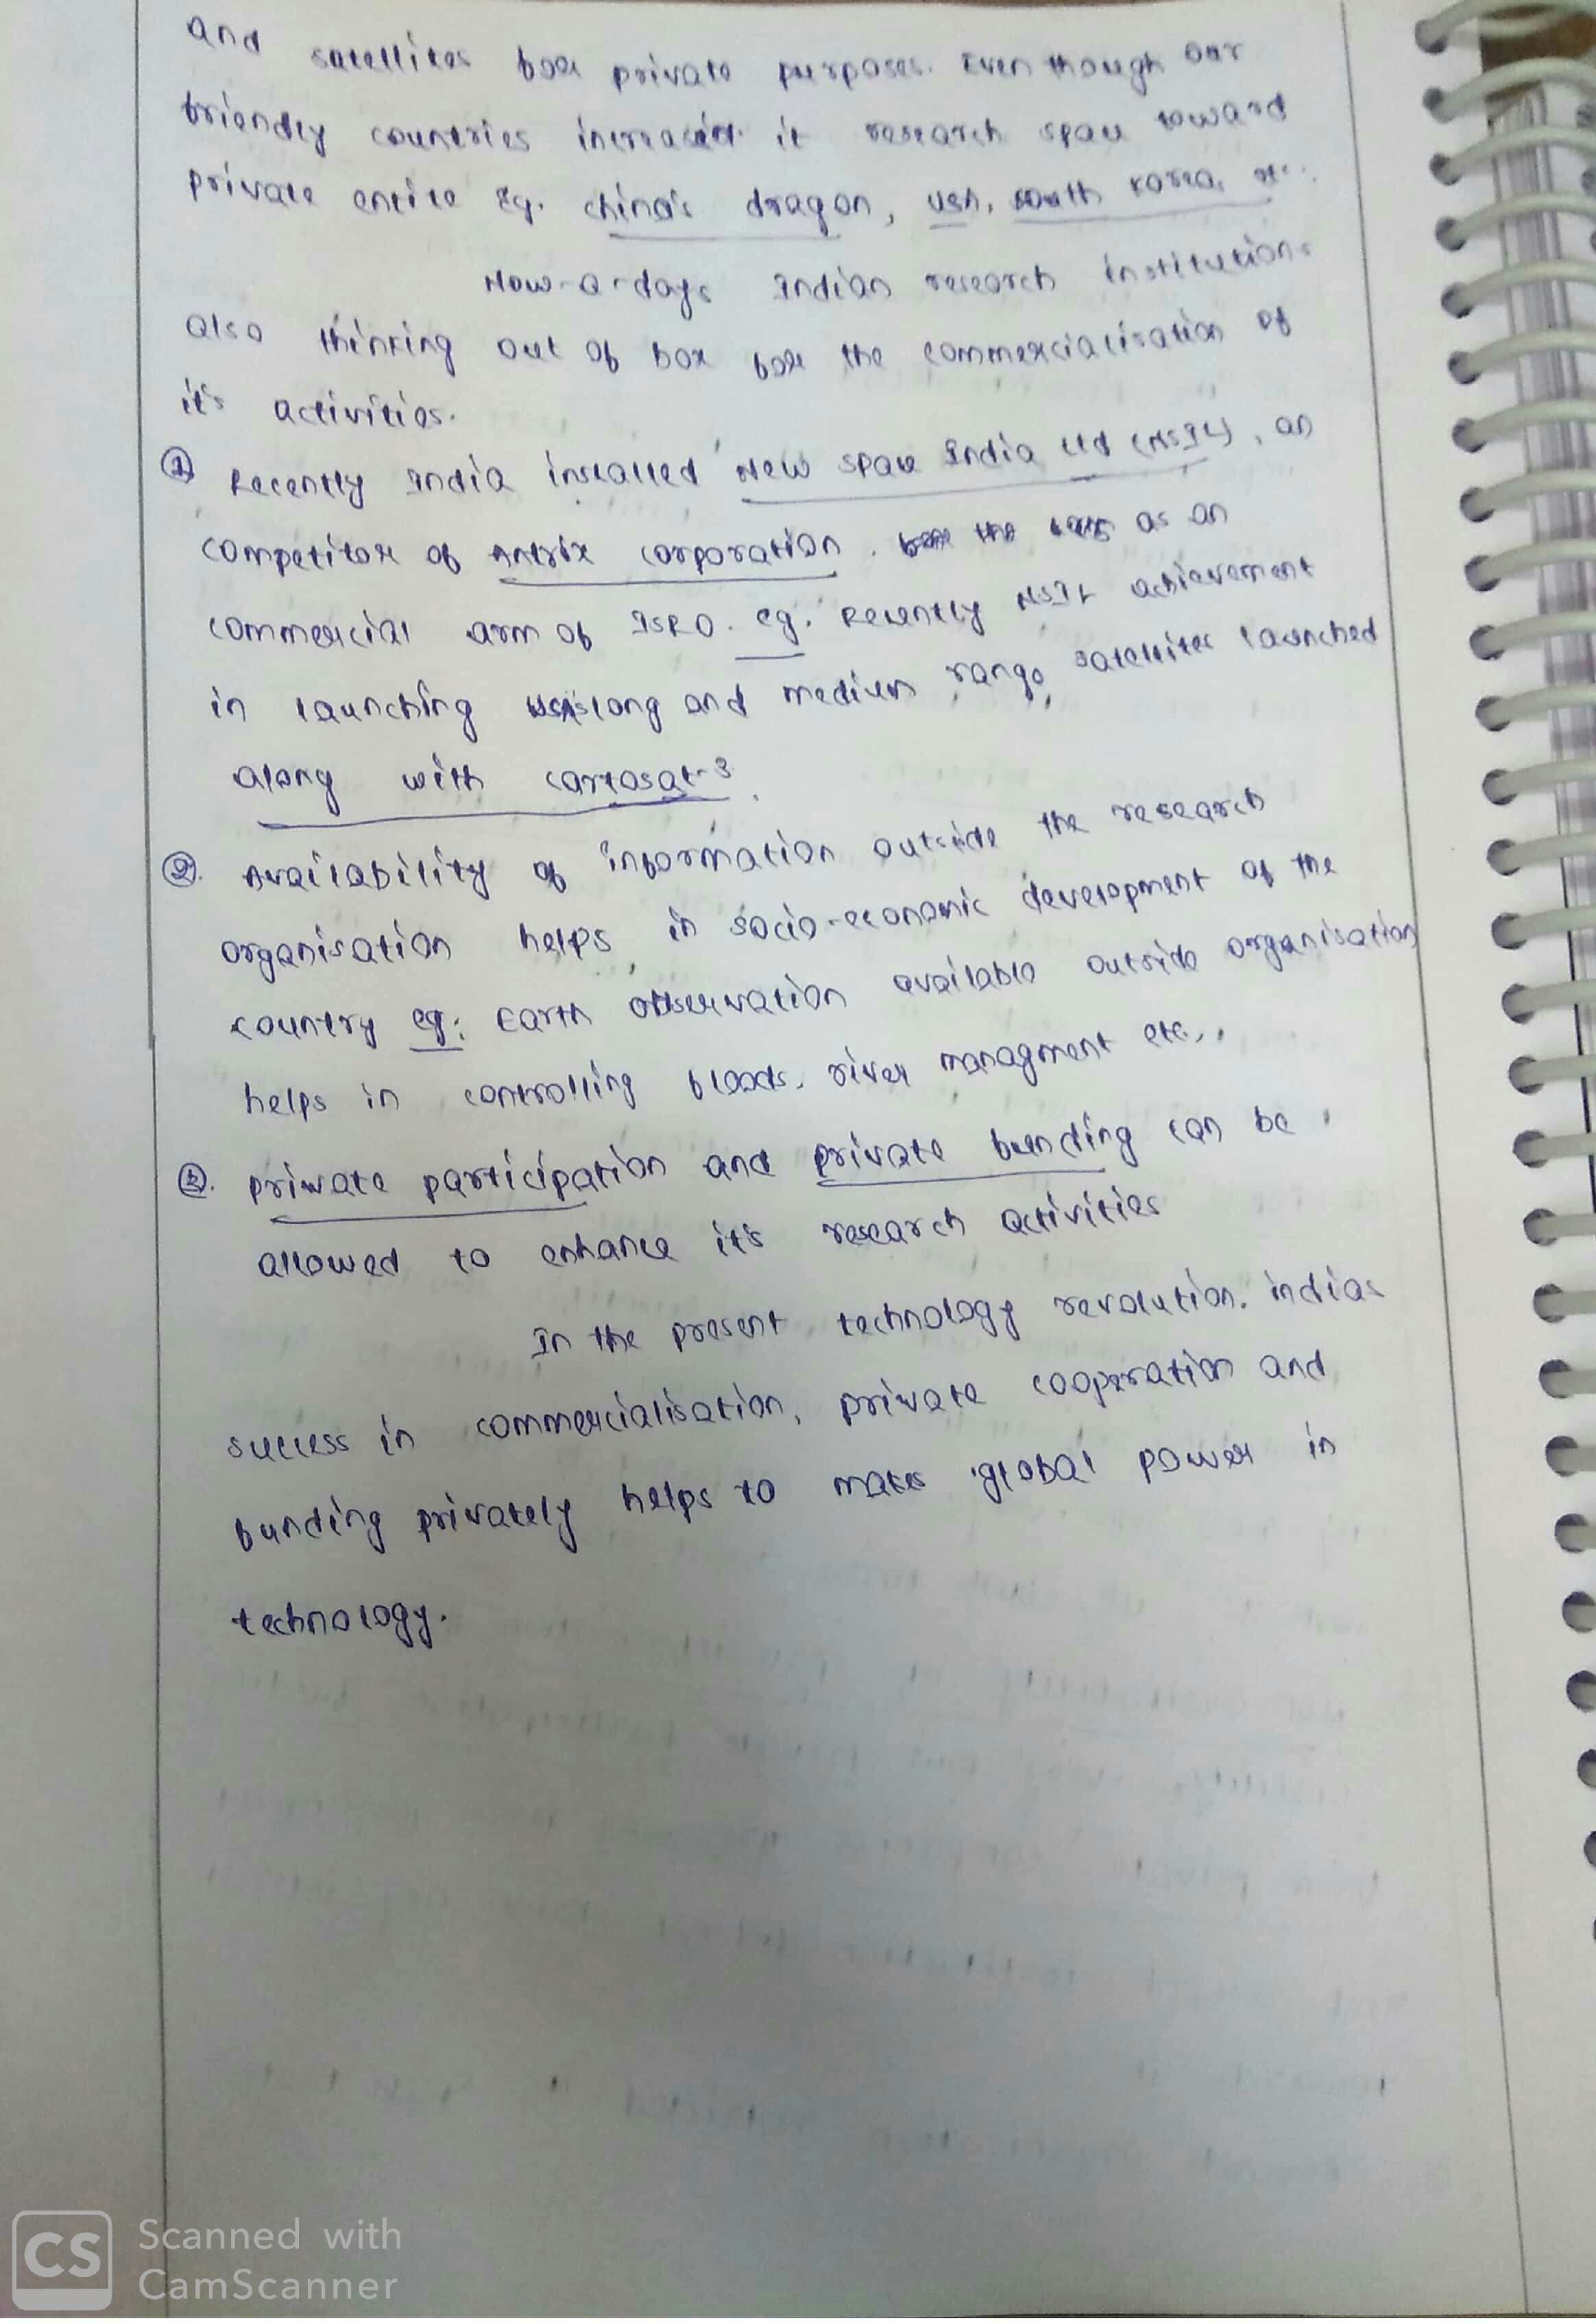 and satellites for private purposes. Even though our
friendly countries increased it research space toward
private entite Eg. china's dragon, USA, south Korea, etc..
Now-a-days Indian research institutions
also thinking out of box for the commercialisation of
it's activities.
① Recently India installed New space India Ltd (NSIL), an
competitor of Antrix corporation. as an
commercial arm of ISRO. eg: Recently NSIL achievement
in launching USA's long and medium range satellites launched
along with cartosat-3.
②. Availability of information outside the research
organisation helps in socio-economic development of the
country eg: Earth observation available outside organisation
helps in controlling floods, river managment etc..
③. private participation and private funding can be
allowed to enhance it's research activities
In the present technology revolution, indias
success in commercialisation, private cooperation and
funding privately helps to makes global power in
technology.
CS Scanned with
CamScanner